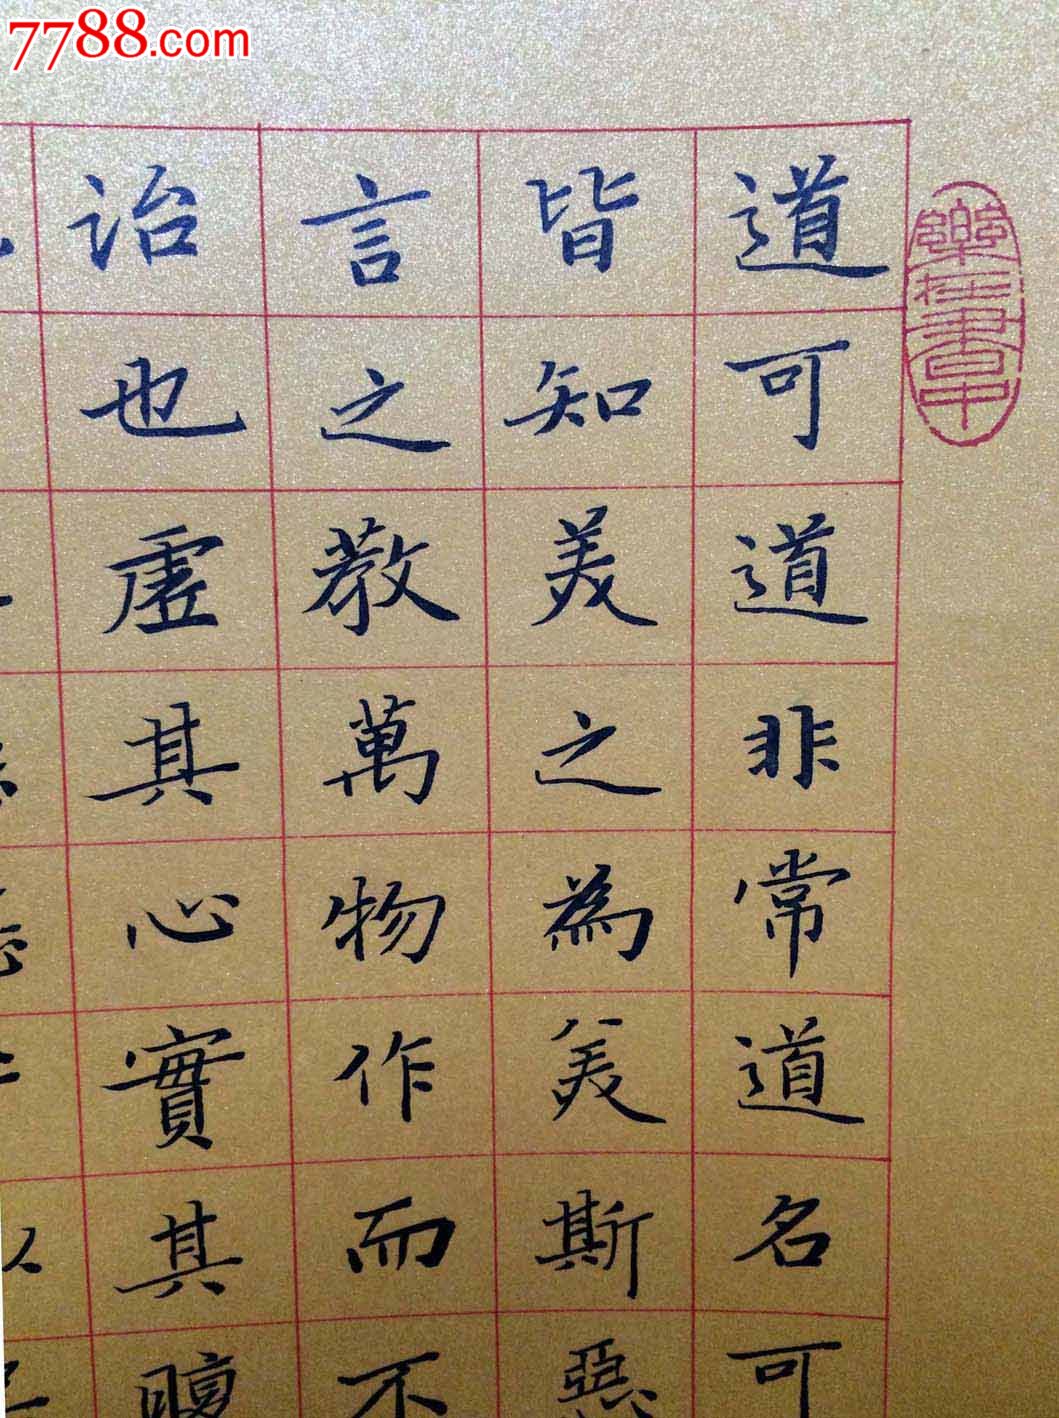 7788.com
道可道非常道名可
皆知美之為美斯惡
言之教萬物作而不
治也虛其心實其腹
樂在書中